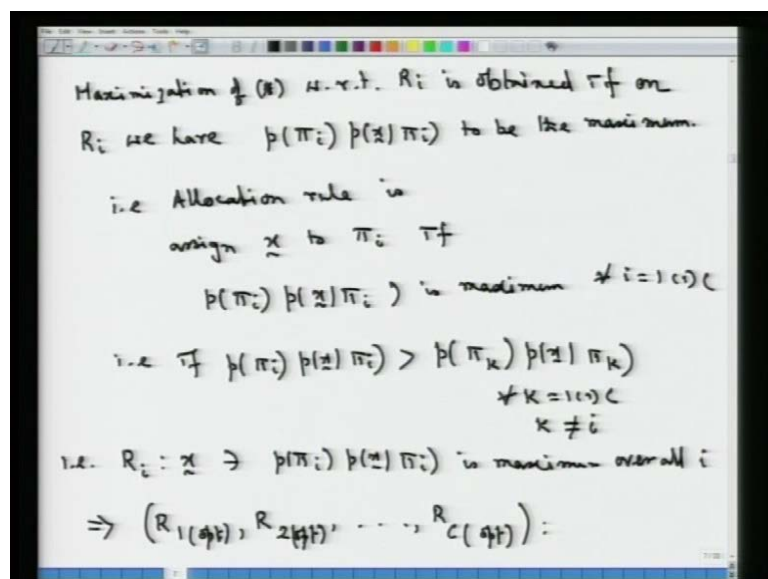 Maximization of (*) w.r.t. Ri is obtained if on
Ri we have p(πi) p(x|πi) to be the maximum.
i.e Allocation rule is
assign x to πi if
p(πi) p(x|πi) is maximum ∀ i=1(1)C
i.e if p(πi) p(x|πi) > p(πk) p(x|πk)
∀ k=1(1)C
k ≠ i
i.e. Ri : x ∋ p(πi) p(x|πi) is maximum over all i
⇒ (R1(opt), R2(opt), ..., RC(opt)) :